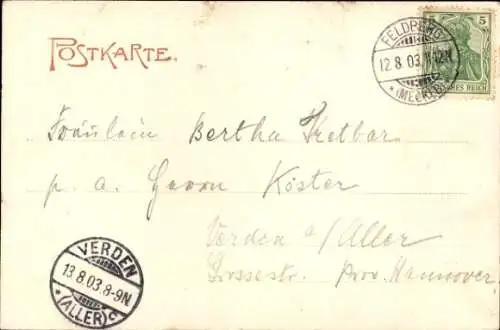 POSTKARTE.
FELDBERG
12.8.03. 11-12N.
* (MECKLB) *
5
DEUTSCHES REICH
Fräulein Bertha Ketbar
p. a. Herrn Köster
Verden a/Aller
Grossestr. Prov. Hannover.
VERDEN
13.8.03.8-9N.
* (ALLER) c